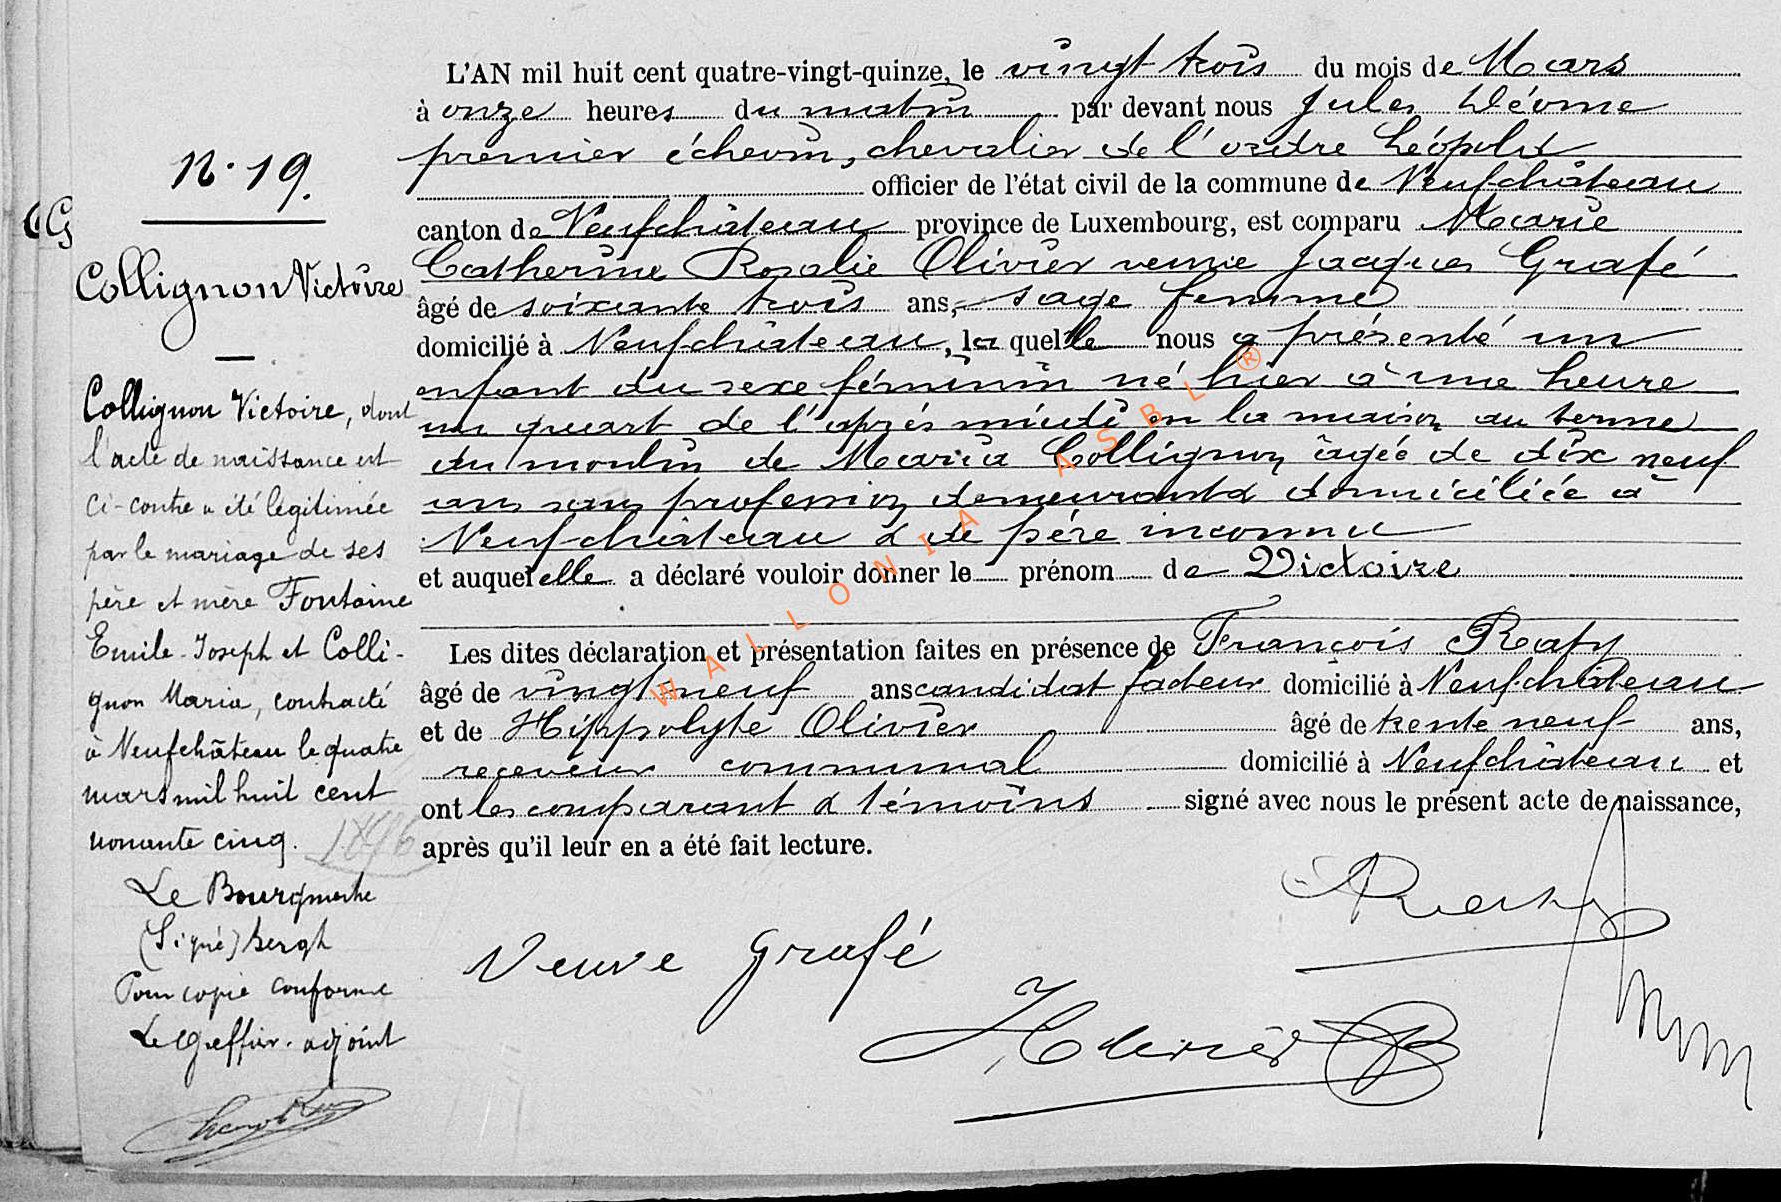 N. 19.
Collignon Victoire
Collignon Victoire, dont
l'acte de naissance est
ci-contre a été légitimée
par le mariage de ses
père et mère Fontaine
Emile-Joseph et Colli-
gnon Maria, contracté
à Neufchâteau le quatre
mars mil huit cent
nonante cinq. 1896
Le Bourgmestre
(Signé) Bergh
Pour copie conforme
Le Greffier-adjoint
L'AN mil huit cent quatre-vingt-quinze, le vingt trois du mois de Mars
à onze heures du matin par devant nous Jules Déome
premier échevin, chevalier de l'ordre Léopold
officier de l'état civil de la commune de Neufchâteau
canton de Neufchâteau province de Luxembourg, est comparu Marie
Catherine Rosalie Olivier veuve Jacques Grafé
âgé de soixante trois ans, sage femme
domicilié à Neufchâteau, la quelle nous a présenté un
enfant du sexe féminin né hier à une heure
un quart de l'après midi en la maison au terme
du moulin de Maria Collignon âgée de dix neuf
ans sans profession demeurant & domiciliée à
Neufchâteau & de père inconnu
et auquel elle a déclaré vouloir donner le prénom de Victoire
Les dites déclaration et présentation faites en présence de François Raty
âgé de vingt neuf ans candidat facteur domicilié à Neufchâteau
et de Hippolyte Olivier âgé de trente neuf ans,
receveur communal domicilié à Neufchâteau et
ont les comparant & témoins signé avec nous le présent acte de naissance,
après qu'il leur en a été fait lecture.
Raty
Veuve Grafé
H Olivier
WALLONIA ASBL ®